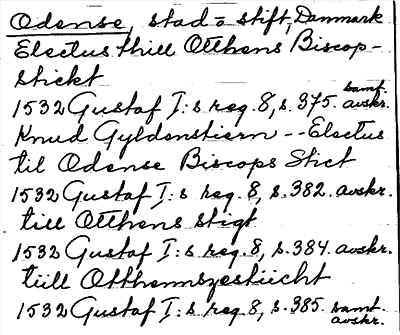 Odense, stad o stift, Danmark
Electus thill Otthens Biscop-
stickt
1532 Gustaf I:s reg. 8, s. 375. samt. avskr.
Knud Gyldenstiern -- Electus
til Odense Biscops Stict
1532 Gustaf I:s reg. 8, s. 382. avskr.
till Otthens stigt
1532 Gustaf I:s reg. 8, s. 384. avskr.
tiill
1532 Gustaf I:s reg. 8, s. 385. samt. avskr.